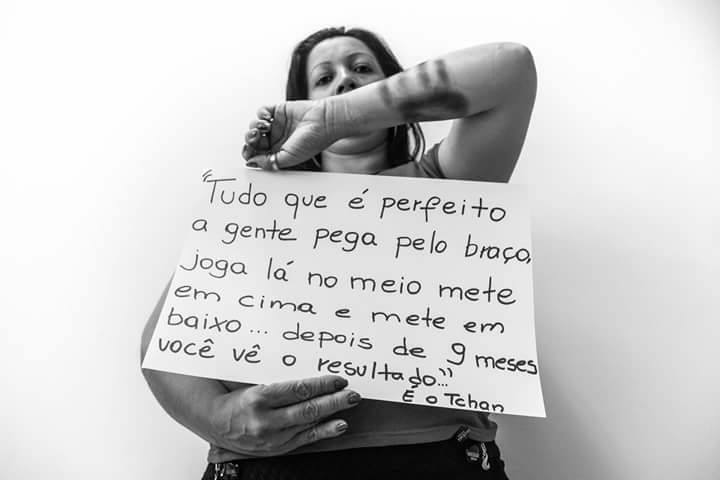 "Tudo que é perfeito
a gente pega pelo braço,
joga lá no meio mete
em cima e mete em
baixo... depois de 9 meses
você vê o resultado..."
É o Tchan